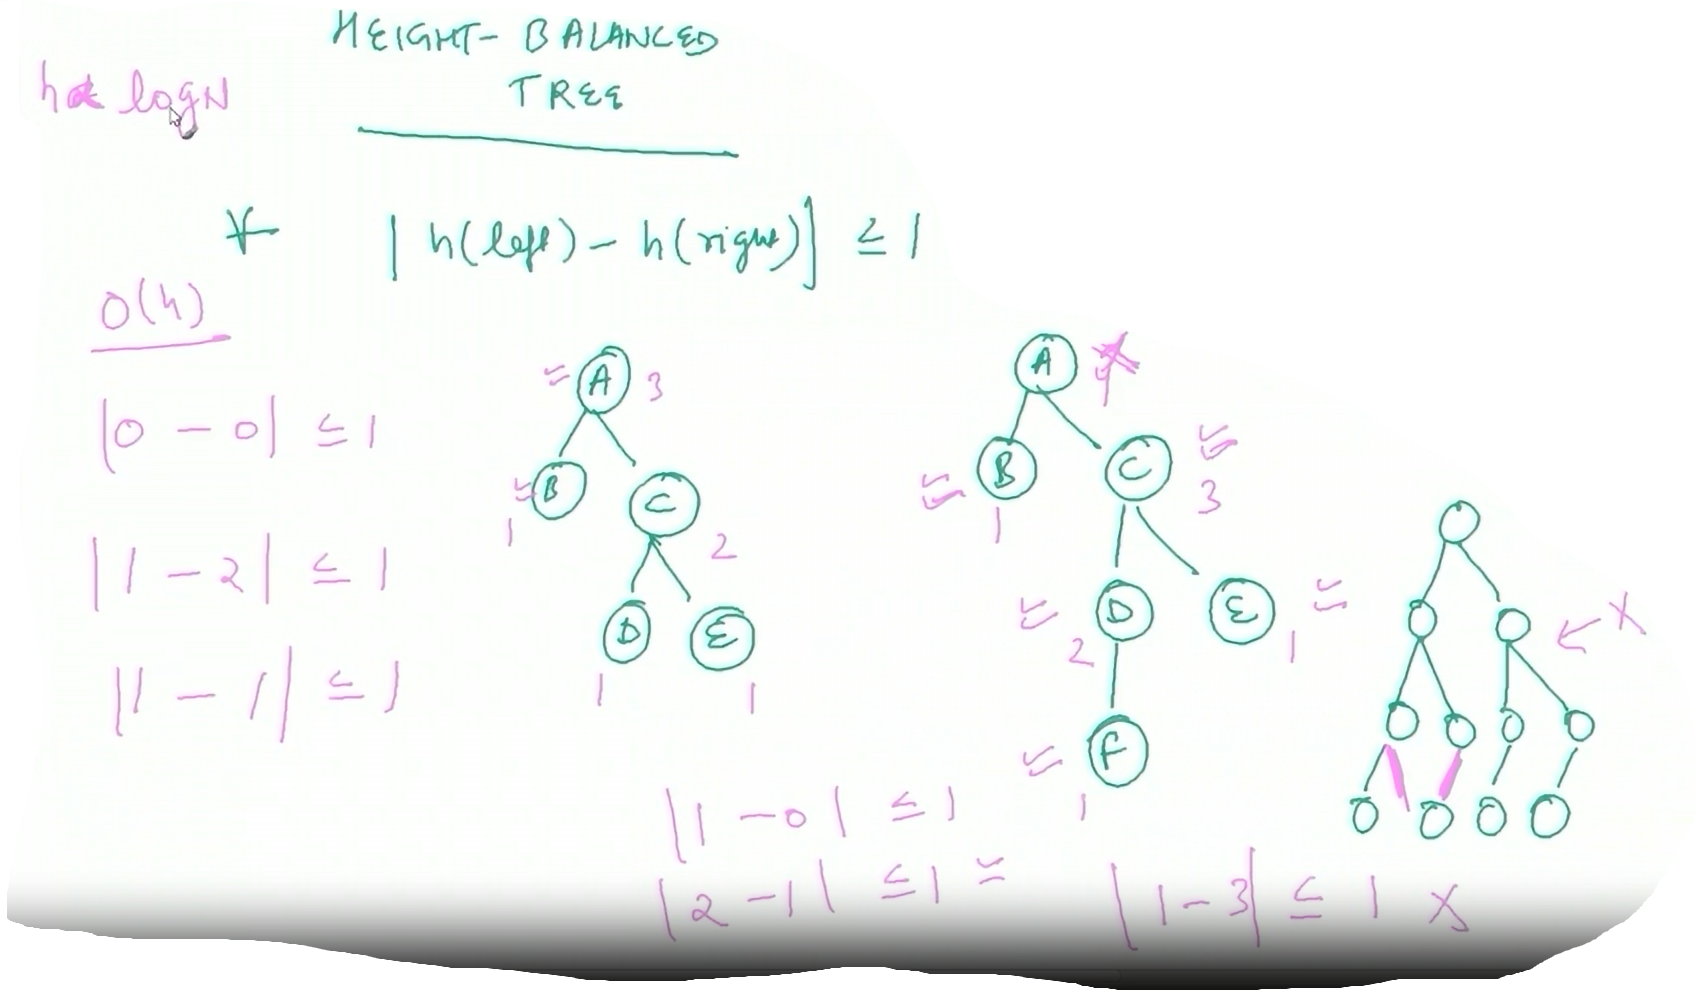 HEIGHT- BALANCED
TREE
h α logN
∀ | h(left) - h(right)| ≤ 1
O(h)
|0 - 0| ≤ 1
|1 - 2| ≤ 1
|1 - 1| ≤ 1
A 3
B
1
C
2
D E
1 1
A
B C
1 3
D E
2 1
F
1
X
|1 - 0| ≤ 1
|2 - 1| ≤ 1
|1 - 3| ≤ 1 X